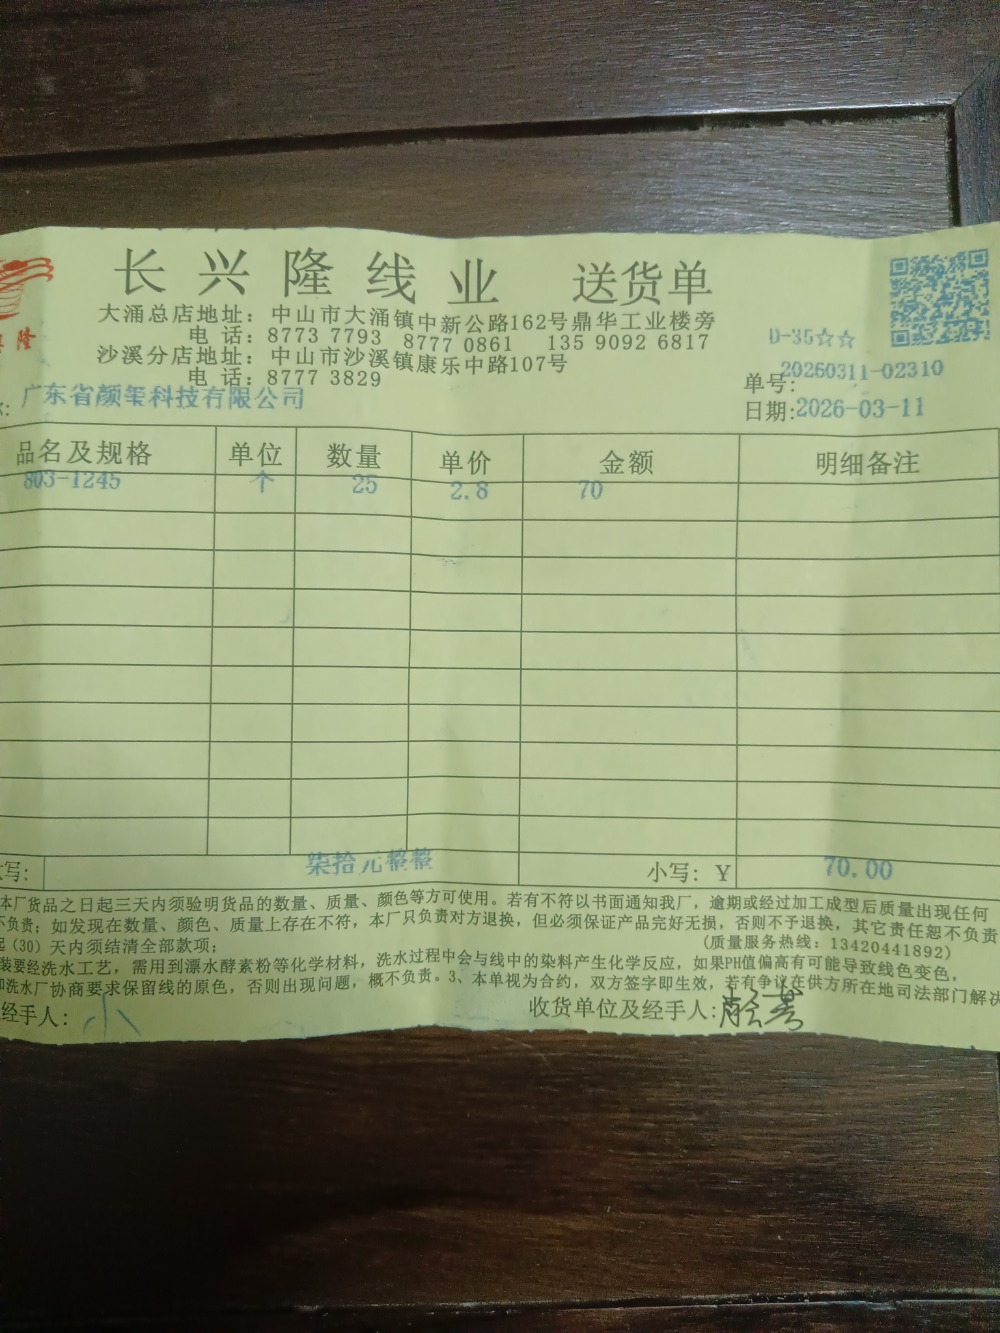 长兴隆线业 送货单
隆
大涌总店地址：中山市大涌镇中新公路162号鼎华工业楼旁
电话：8773 7793 8777 0861 135 9092 6817
D-35☆☆
沙溪分店地址：中山市沙溪镇康乐中路107号
电话：8777 3829
单号：20260311-02310
广东省颜玺科技有限公司
日期:2026-03-11
品名及规格 单位 数量 单价 金额 明细备注
803-1245 个 25 2.8 70
写： 柒拾元整整 小写：Y 70.00
本厂货品之日起三天内须验明货品的数量、质量、颜色等方可使用。若有不符以书面通知我厂，逾期或经过加工成型后质量出现任何
不负责；如发现在数量、颜色、质量上存在不符，本厂只负责对方退换，但必须保证产品完好无损，否则不予退换，其它责任恕不负责
起（30）天内须结清全部款项； (质量服务热线：13420441892)
装要经洗水工艺，需用到漂水酵素粉等化学材料，洗水过程中会与线中的染料产生化学反应，如果PH值偏高有可能导致线色变色，
和洗水厂协商要求保留线的原色，否则出现问题，概不负责。3、本单视为合约，双方签字即生效，若有争议在供方所在地司法部门解决
经手人：小 收货单位及经手人：